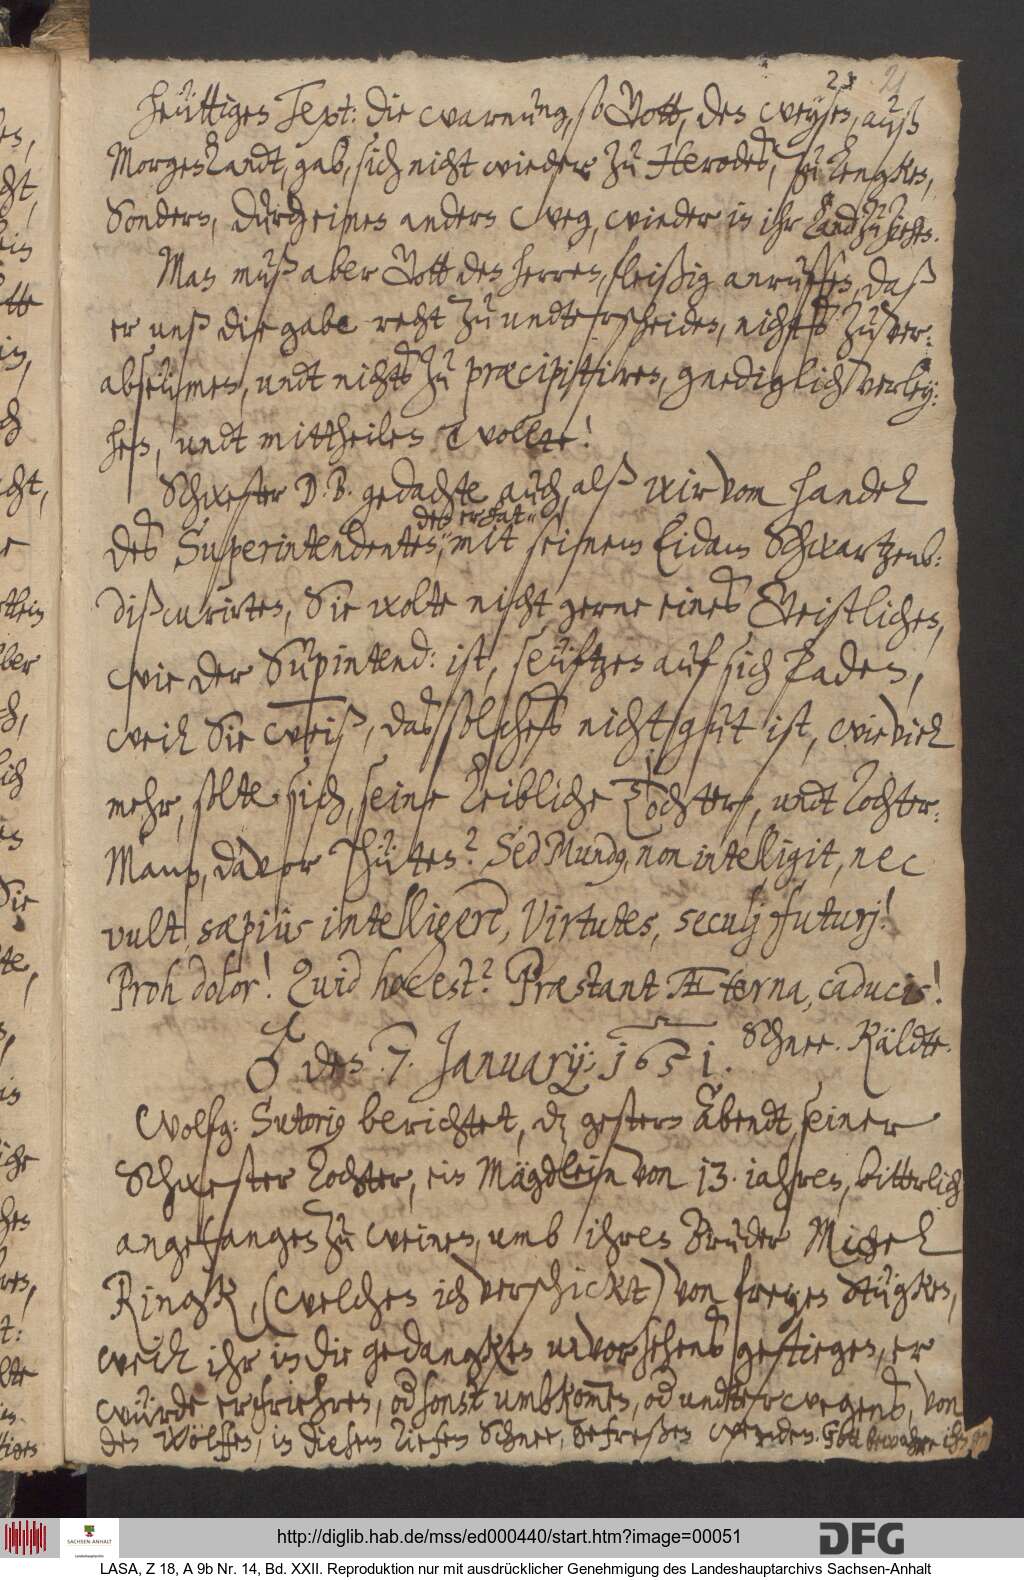 21 21
heüttiges Text: die warnung, so Gott, den weysen, auß
MorgenLandt, gab, sich nicht wieder zu Herodes, zu lengken,
Sondern, durch einen andern weg, wieder in ihr Land zu ziehen.
Man muß aber Gott den herren, fleißig anruffen, daß
er unß die gabe recht zu undterscheiden, nichts zu ver:
abseümen, undt nichts zu præcipitiren, gnediglich verley:
hen, undt mittheilen wollte!
Schwester D. B. gedachte auch, alß wir vom handel
den er hat
des Superintendenten, mit seinem Eidam Schwartzenb:
dißcurirten, Sie wolte nicht gerne eines Geistlichen,
wie der Supintend: ist, seüftzen auf sich laden,
weil Sie weiß, das solches nicht gut ist, wie viel
mehr, solte sich, seine leibliche Tochter, undt Tochter:
Mann, davor hüten? Sed Mundus, non intelligit, nec
vult sæpius intelligere, Virtutes, seculj futurj!
Proh dolor! Quid hoc est? Præstant Æterna, caducis!
♂ den 7. Januarij: 1651. Schnee. Käldte.
Wolfg: Sutorius berichtet, dz gestern Abendt, seiner
Schwester Tochter, ein Mägdlein von 13. iahren, bitterlich
angefangen zu weinen, umb ihren Bruder Michel
Ringk, (welchen ich verschickt) von freyen stügken,
weil ihr in die gedangken unvorsehens gestiegen, er
würde erfriehren, od sonst umbkommen, od undterwegens, von
den Wölffen, in diesem tiefen Schnee, gefreßen werden. Gott bewahre ihn
http://diglib.hab.de/mss/ed000440/start.htm?image=00051
SACHSEN-ANHALT
Landeshauptarchiv
DFG
LASA, Z 18, A 9b Nr. 14, Bd. XXII. Reproduktion nur mit ausdrücklicher Genehmigung des Landeshauptarchivs Sachsen-Anhalt